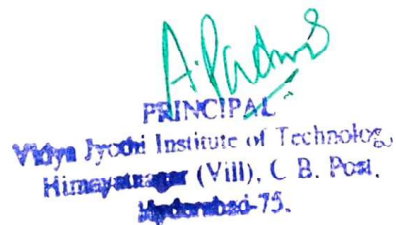 A. Padma
PRINCIPAL
Vidya Jyothi Institute of Technolog
Himayatnagar (Vill), C B. Post,
Hyderabad-75.